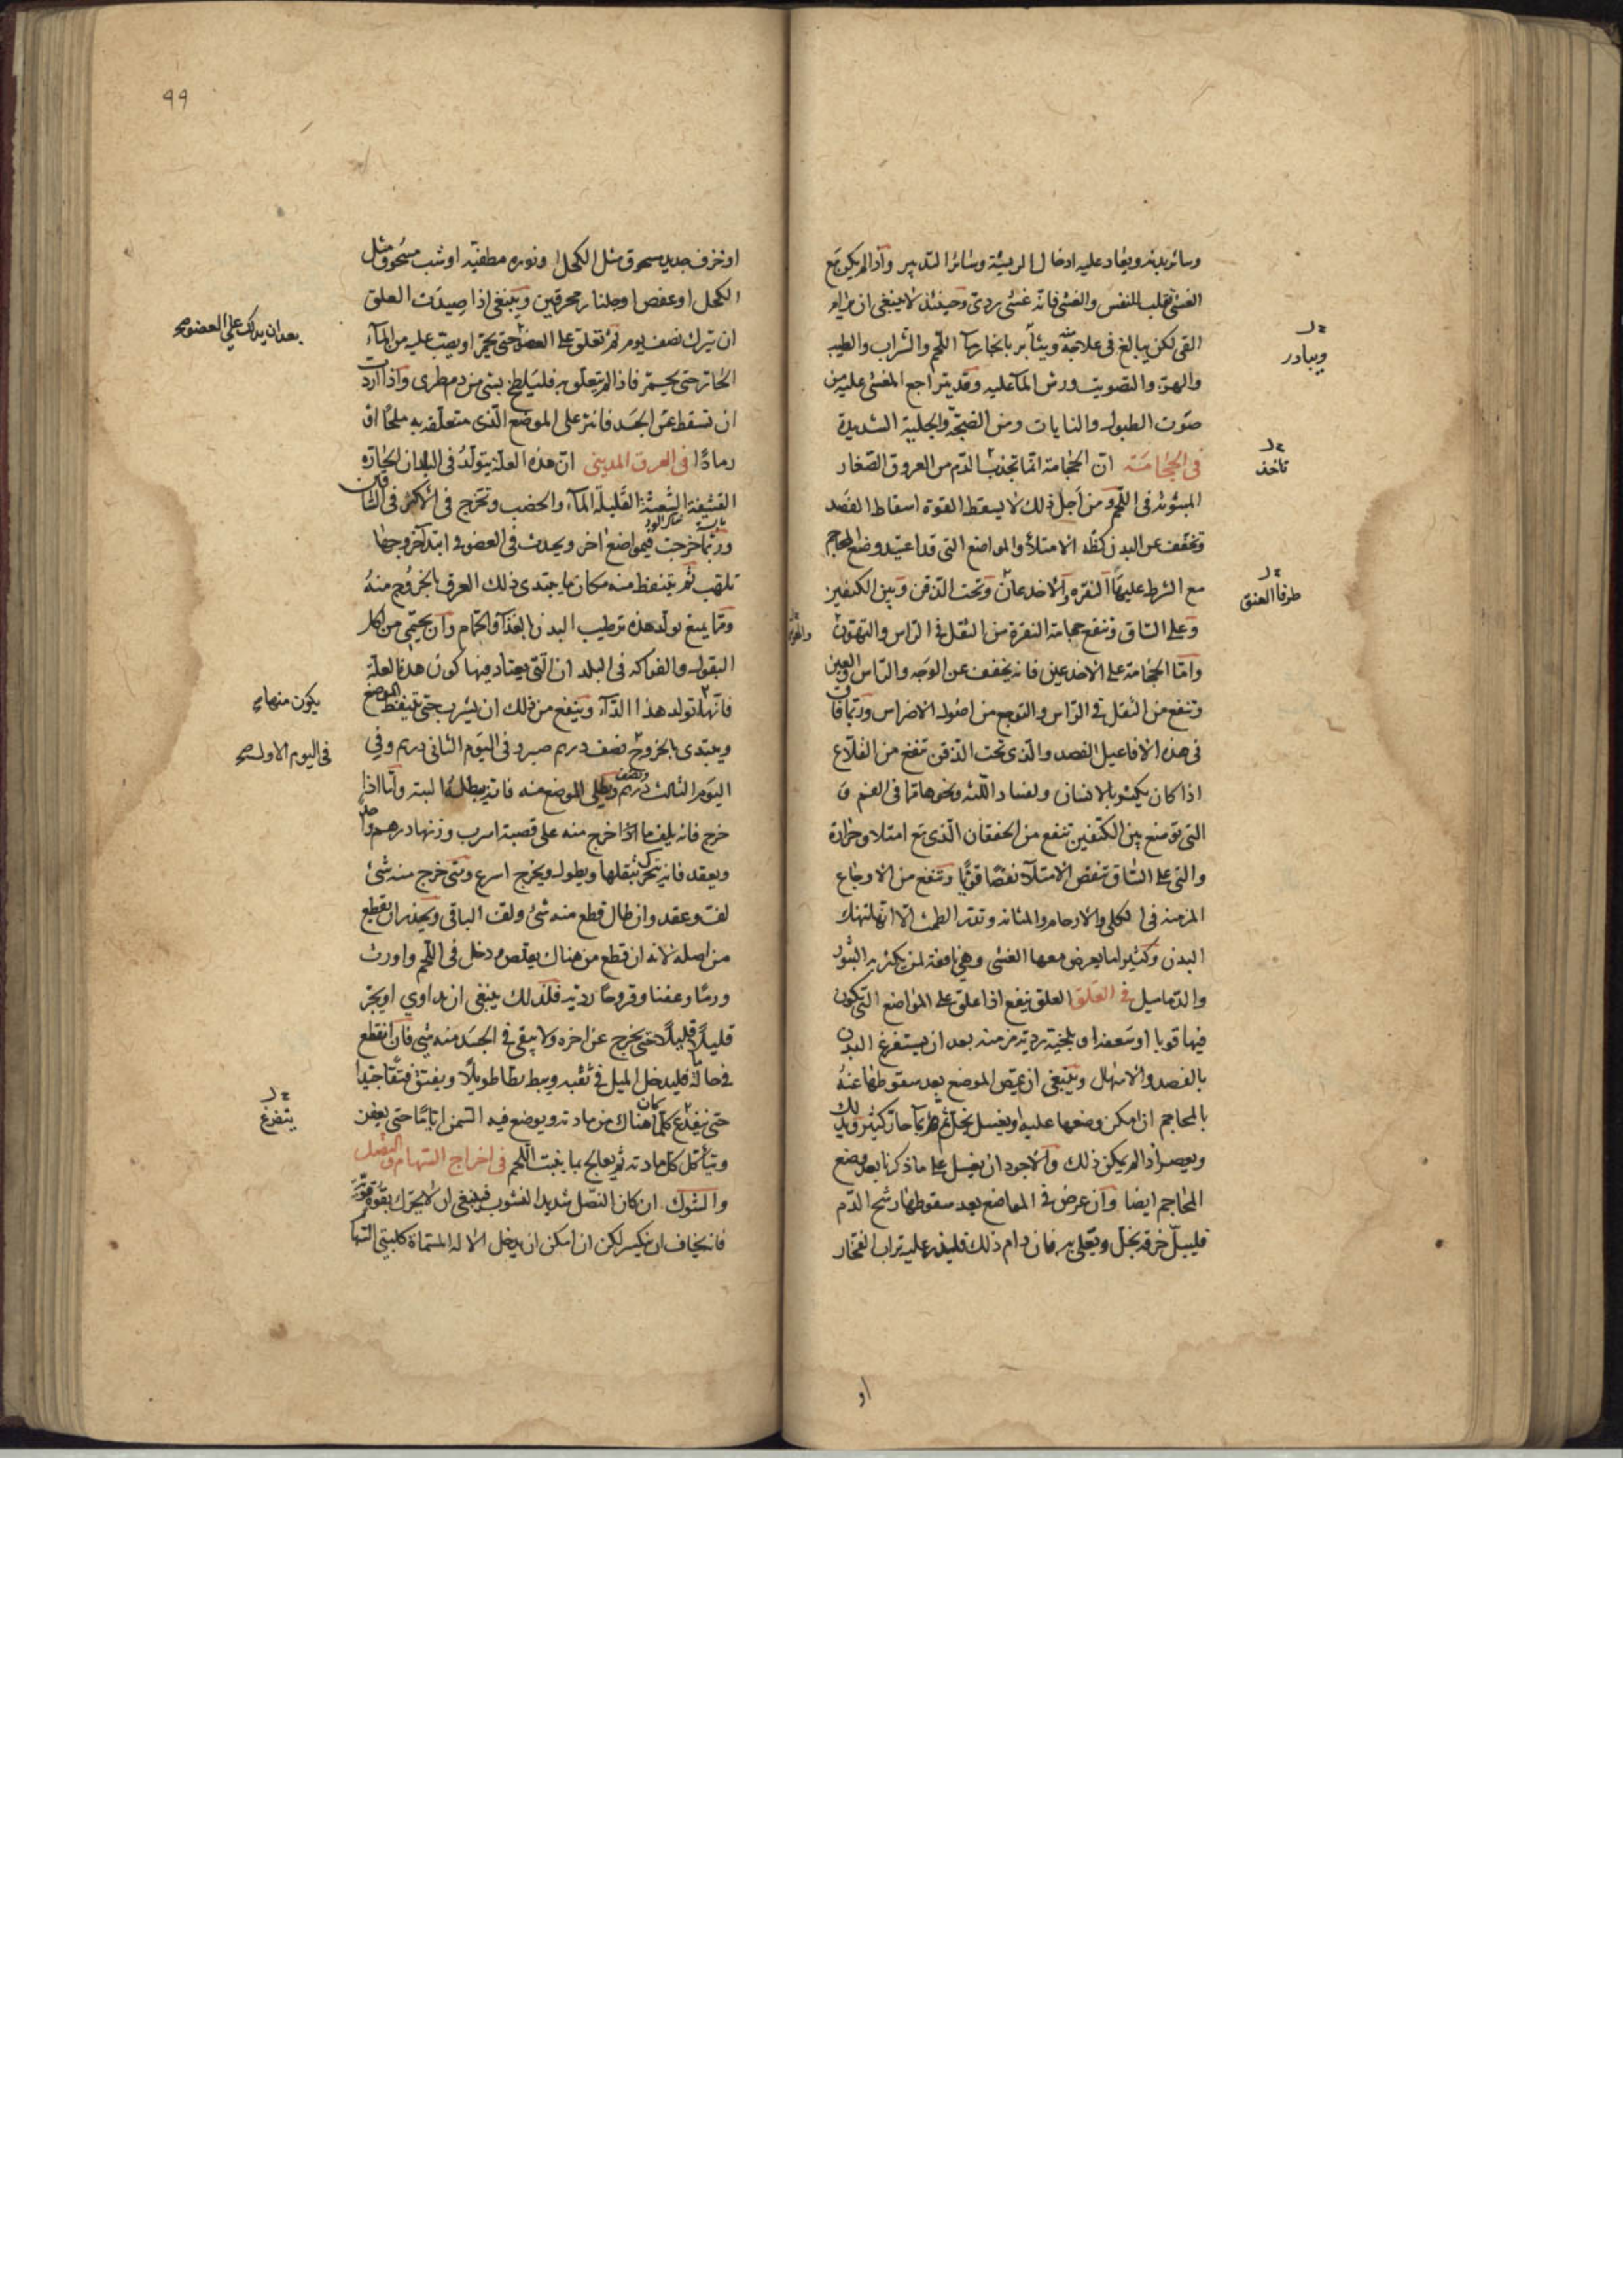 وسائر بدنه ويعاد عليه ادخال الريشة وسائر التدبير واذا لم يكن مع
الغشى تقلب النفس والغشى فانه غشى ردى وحينئذ لا ينبغى ان يرام
القى لكن يبالغ فى علاجه وبيأبر بانجار ماء اللحم والشراب والطيب
والهز والتصويت ورش الماء عليه وقد يتراجع المغشى عليه من
صوت الطبول والنايات ومن الضجة والجلبة الشديدة
فى الحجامة ان الحجامة انما تجذب الدم من العروق الصغار
المبثوثة فى اللحم ومن اجل ذلك لا يسقط القوة اسقاط الفصد
وتخفف عن البدن كظة الامتلاء والمواضع التى قد اعتيد وضع المحاجم
مع الشرط عليها النقرة والاخدعان وتحت الذقن وبين الكتفين
وعلى الساق وتنفع حجامة النقرة من الثقل فى الراس والتهون
واما الحجامة على الاخدعين فانه يخفف عن الوجه والراس والعين
وتنفع من الثقل فى الراس والتوجع من اصول الاضراس وربما قا
فى هذه الافاعيل الفصد والذى تحت الذقن تنفع من القلاع
اذا كان يكثر بالانسان ولفساد اللثة ونحوها مما فى الفم و
التى توضع بين الكتفين تنفع من الخفقان الذى مع امتلا وحرارة
والتى على الساق تنقص الامتلاء نقصا قويا وتنفع من الاوجاع
المزمنة فى الكلى والارحام والمثانة وتدر الطمث الا انها تنهك
البدن وكثيرا ما يعرض معها الغشى وهى نافعة لمن يكثر به البثور
والدماميل فى العلق العلق ينفع اذا علق على المواضع التى يكون
فيها قوبا او سعفه او بلخية ردية مزمنة بعد ان يستفرغ البدن
بالفصد والاسهال وينبغى ان يمص الموضع بعد سقوطها عنه
بالمحاجم ان امكن وضعها عليه او يغسل بخل ثم بماء حار كثير ويدلك
ويعصر اذا لم يكن ذلك والاجود ان يغسل على ما ذكرنا بعد وضع
المحاجم ايضا وان عرض فى المواضع بعد سقوطها رشح الدم
فليبل خرقة بخل ويعلى به فان دام ذلك فليذر عليه تراب الفخار
ويبادر
تاخذ
طرفا العنق
او
٩٩
او خزف جديد مسحوق مثل الكحل او نوره مطفية او شب مسحوق مثل
الكحل او عفص او جلنار محرقين وينبغى اذا صيدت العلق
ان تترك نصف يوم ثم تعلق على العضو حتى يحمر او يصب عليه من الماء
الحار حتى يحمر فاذا لم يتعلق به فليلطخ بشى من دم طرى واذا اردت
ان تسقط عن الجسد فانثر على الموضع الذى متعلقه به ملحا او
رمادا فى العرق المدينى ان هذه العلة يتولد فى البلدان الحارة
القشفة الشعثة القليلة الماء والخضب وتخرج فى الاكثر فى الساقين
وربما خرجت فى مواضع اخر ويحدث فى العضو فى ابتداء خروجها
تلهب ثم يتنفط منه مكان ما يبتدى ذلك العرق بالخروج منه
ومما يمنع تولد هذه ترطيب البدن بالغذاء والحمام وان يحتمى من اكل
البقول والفواكه فى البلدان التى يعتاد فيها كون هذه العلة
فانها تولد هذا الداء وينفع من ذلك ان يشرب حتى يتنفط الموضع
ويبتدى بالخروج نصف درهم صبر وفى اليوم الثانى درهم وفى
اليوم الثالث درهم ونصف ويطلى الموضع منه فانه يبطله البتة واما اذا
خرج فانه يلف ما اذا خرج منه على قصبة اسرب وزنها درهم واحد
ويعقد فانه يتحرك بثقلها ويطول ويخرج اسرع ومتى خرج منه شئ
لف وعقد وان طال قطع منه شئ ولف الباقى ويحذر ان يقطع
من اصله لانه ان قطع من هناك يتقلص ودخل فى اللحم واورث
ورما وعفنا وقروحا ردية فلذلك ينبغى ان يداوى او يجر
قليلا قليلا حتى يخرج عن اخره ولا يبقى فى الجسد منه شئ فان انقطع
فى حالة فليدخل الميل فى ثقبه ويبط بطا طويلا ويفتق فتقا جيدا
حتى يفرغ كلما كان هناك من مادته ويوضع فيه السمن اياما حتى يعفن
ويتأكل كل مادته ثم يعالج بما ينبت اللحم فى اخراج السهام والنصل
والشوك ان كان النصل شديد النشوب فينبغى ان لا يحرك بقوة قوية
فانه يخاف ان ينكسر لكن ان امكن ان يدخل الالة المسماة كلبتى السهام
بعد ان يدلك على العضو صح
يكون منها
فى اليوم الاول صح
يتفرغ